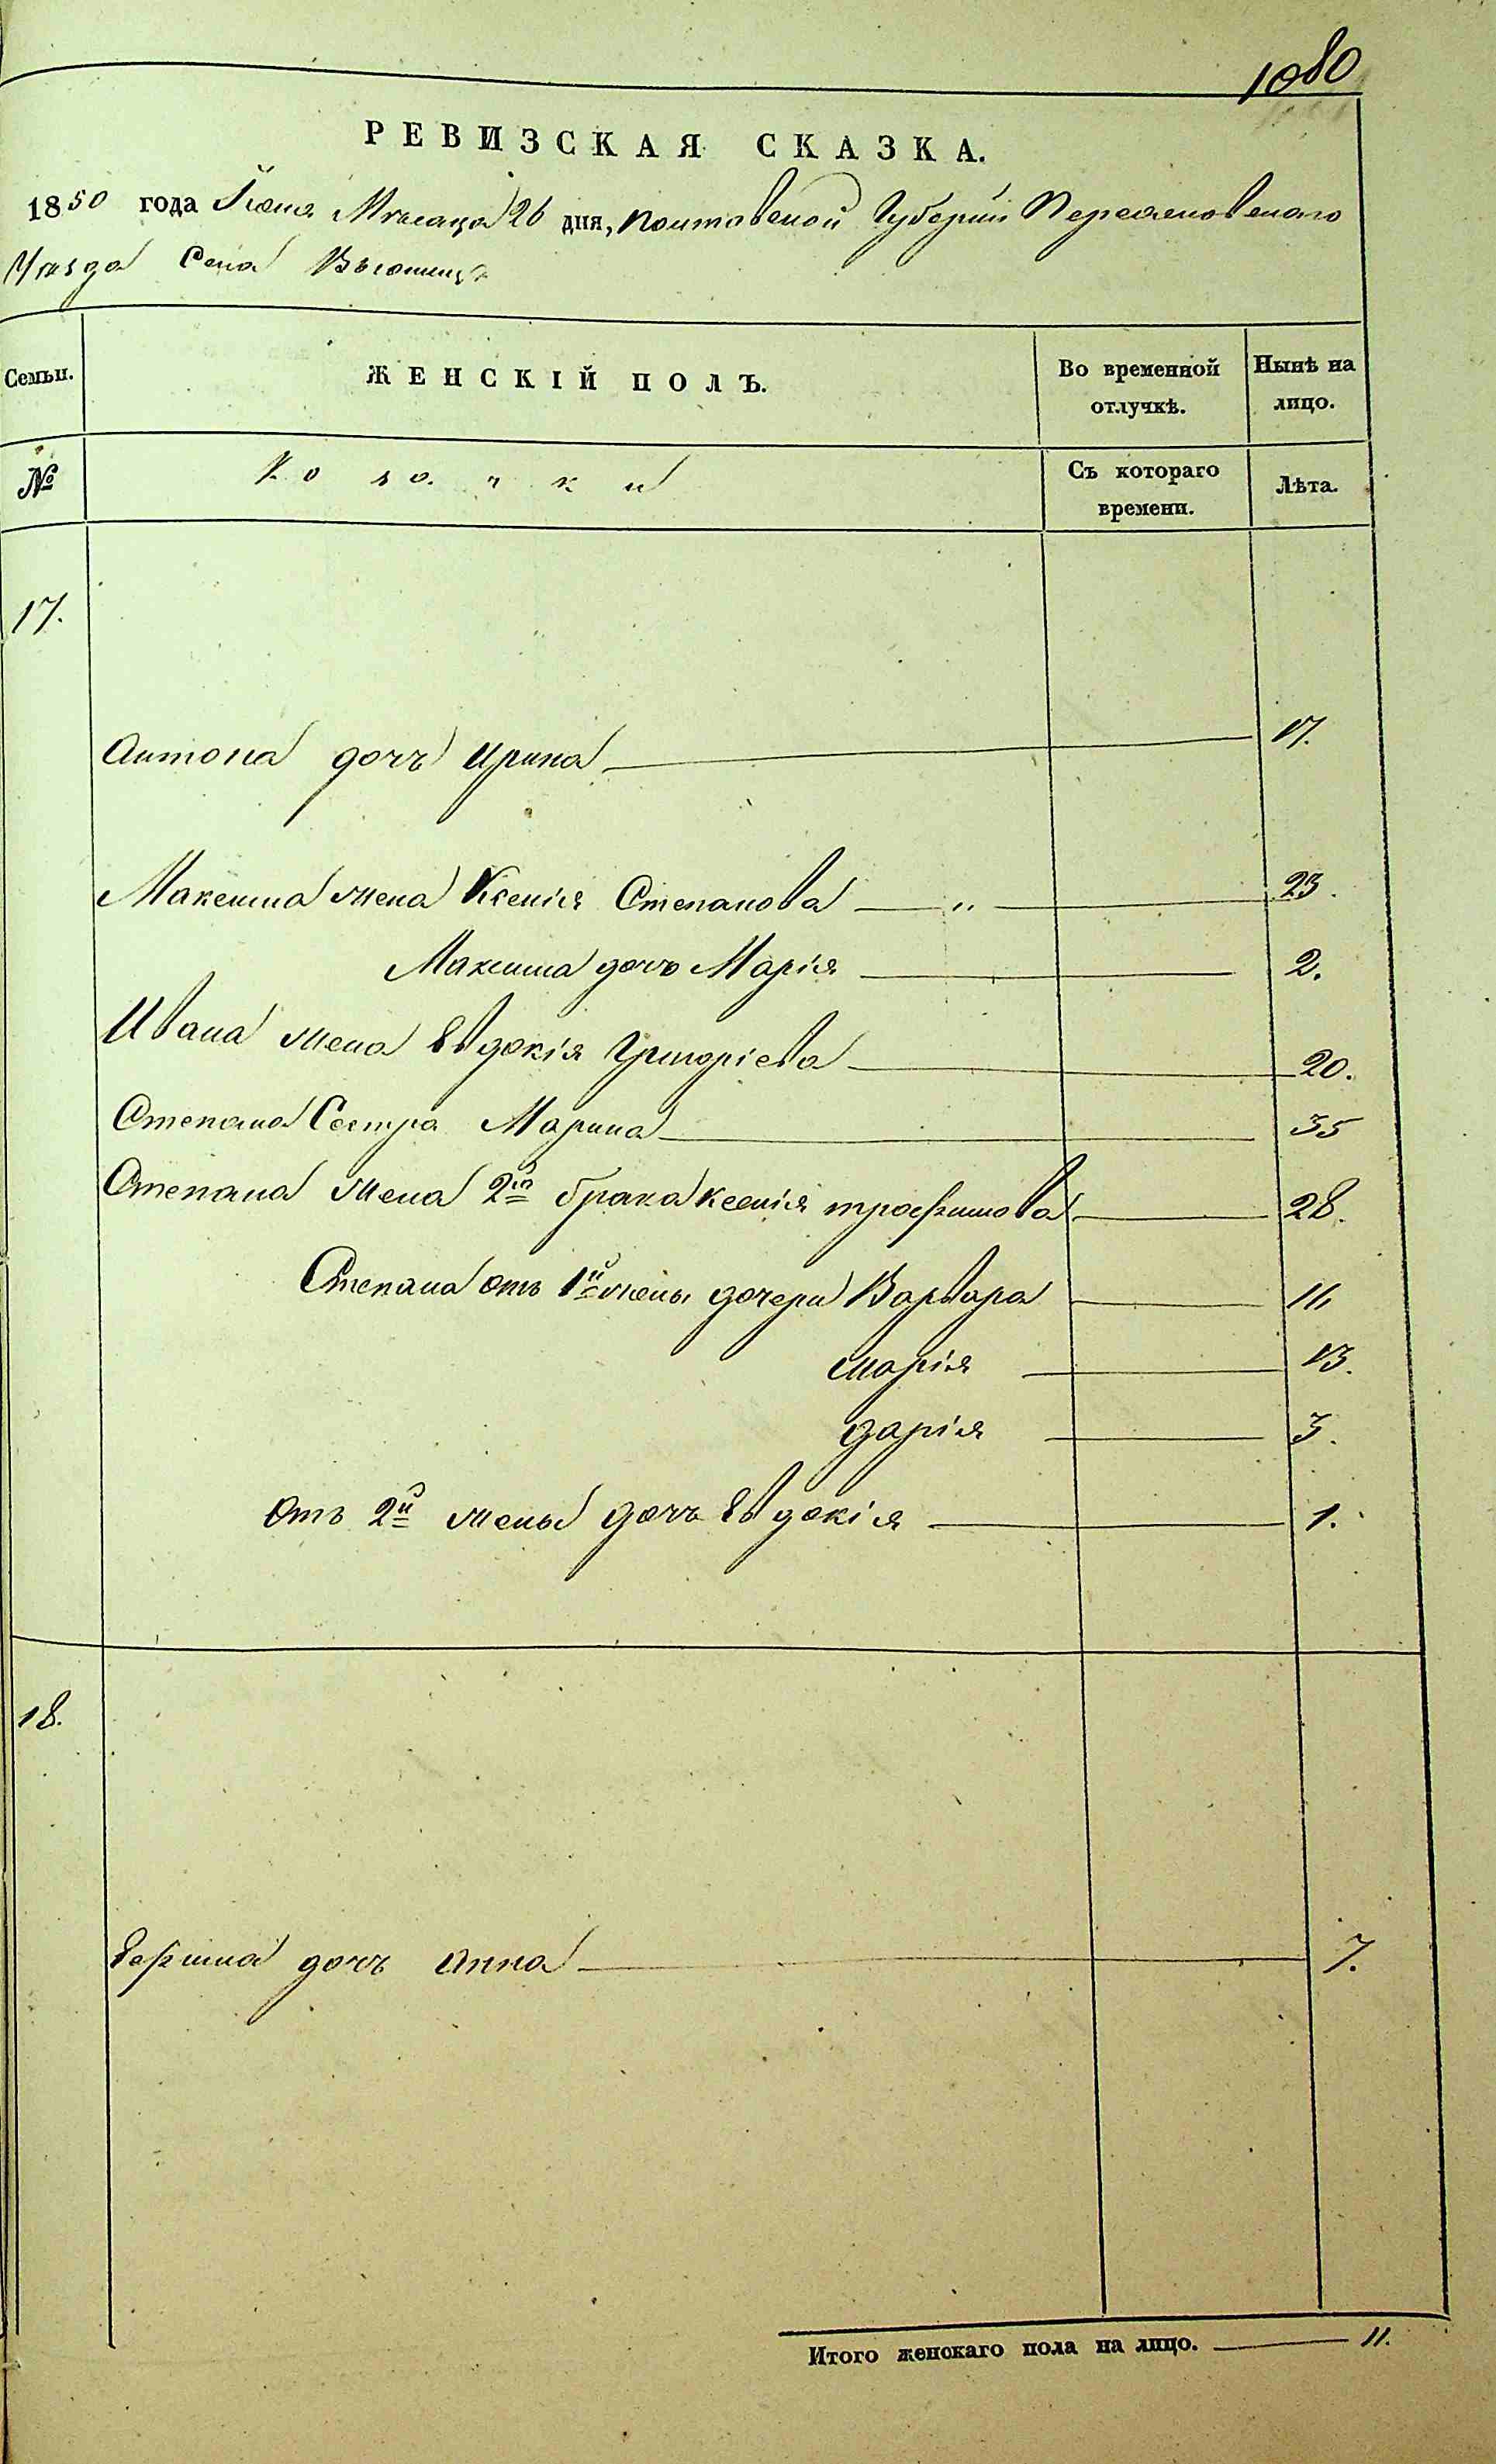 1080
РЕВИЗСКАЯ СКАЗКА.
1850 года Іюня Мѣсяца 26 дня, Полтавской Губерніи Переяславского
Уѣзда Села
Семьи. ЖЕНСКІЙ ПОЛЪ. Во временной отлучкѣ. Нынѣ на лицо.
№ Козачки Съ котораго времени. Лѣта.
17.
Антона дочь Ирина 17.
Максима жена Ксенія Степанова „ 23.
Максима дочь Марія 2.
Ивана жена Евдокія Григоріева 20.
Степана Сестра Марина 35
Степана жена 2го брака Ксенія трофимова 28.
Степана отъ 1й жены дочери Варвара 11,
марія 13.
дарія 3.
Отъ 2й жены дочь Евдокія 1.
18.
Ефима дочь Анна 7.
Итого женскаго пола на лицо. 11.